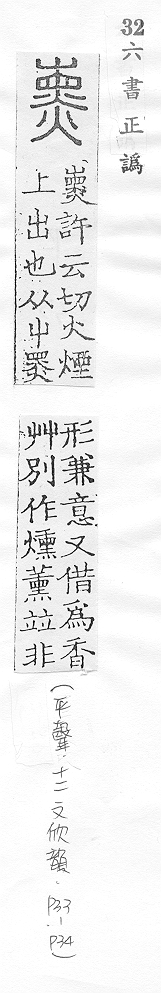 32 六書正譌
熏
熏許云切火煙
上出也从屮黑
形兼意又借爲香
艸別作燻薰竝非
(平聲·十二文欣韻·P33-P34)